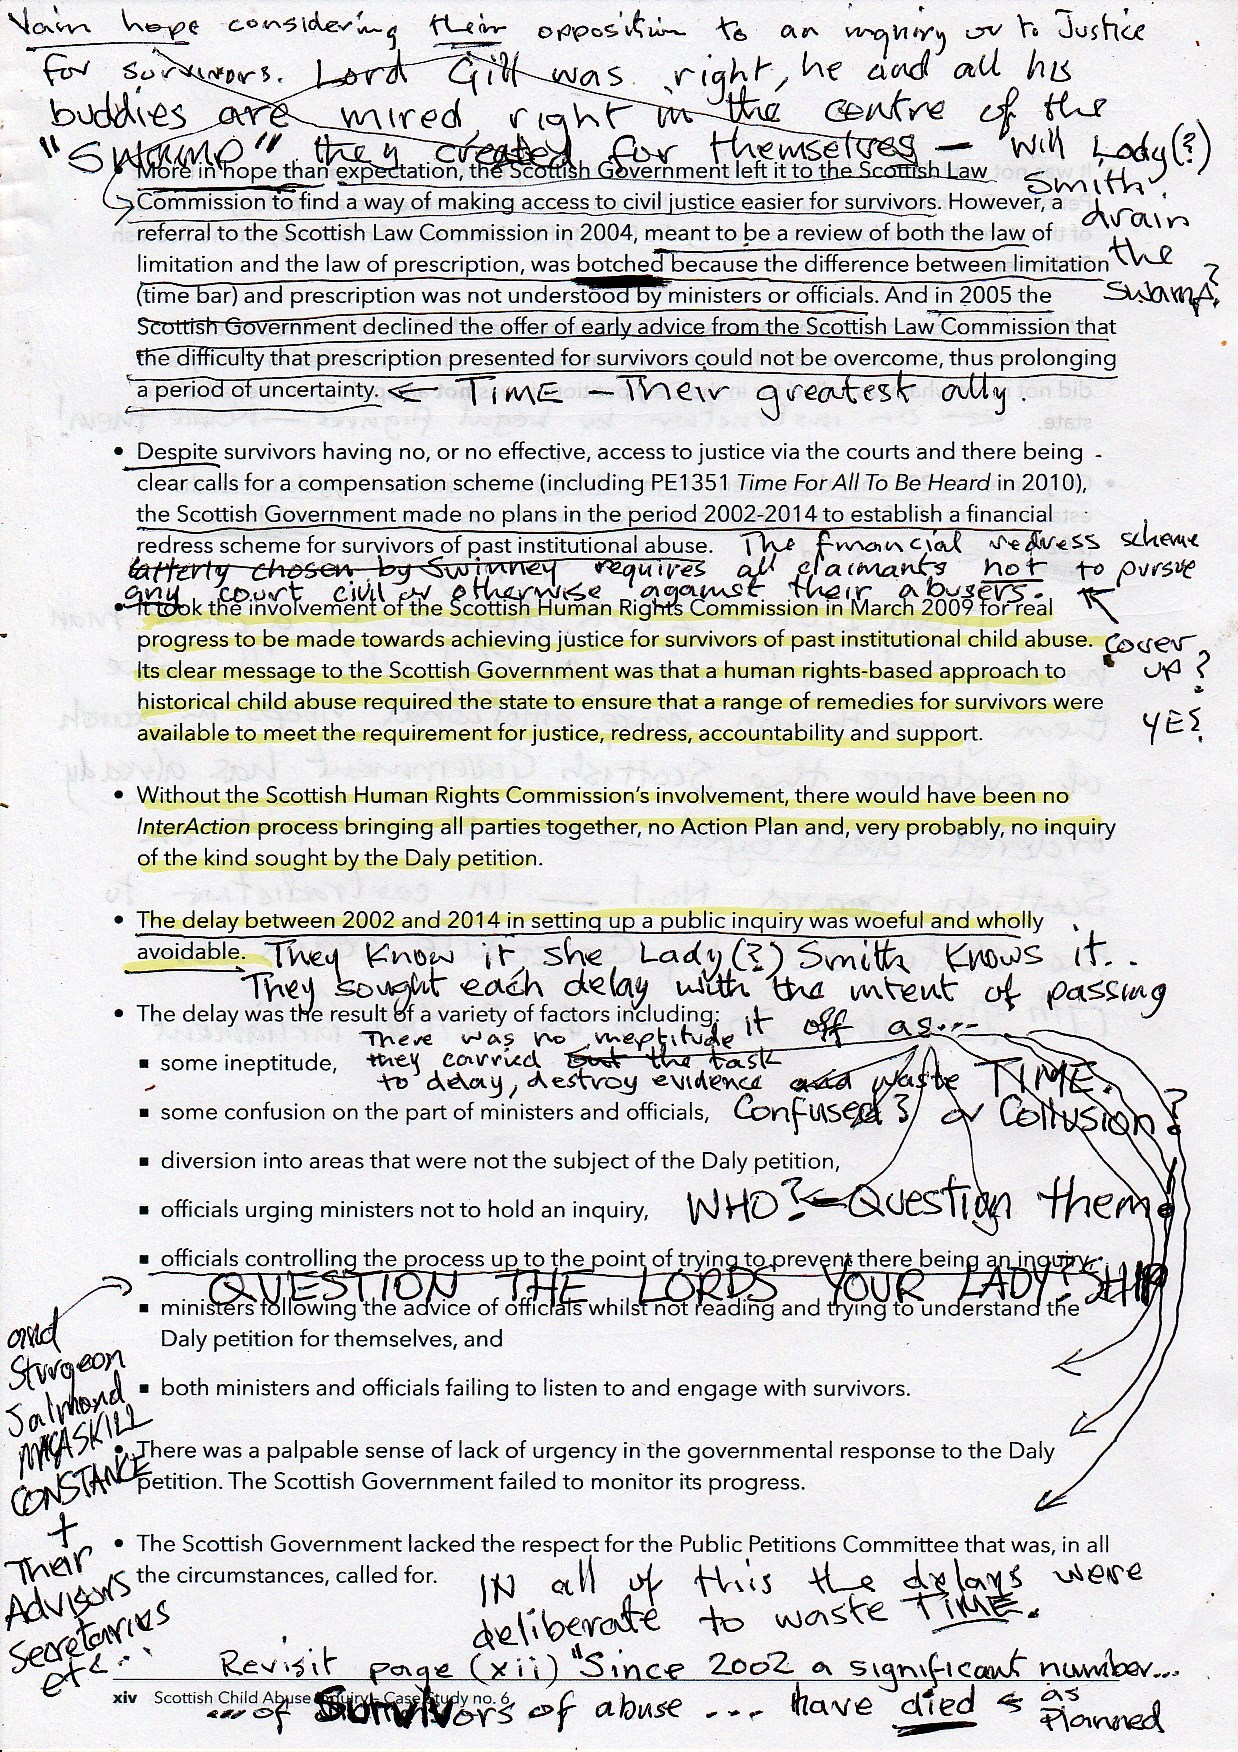 Vain hope considering their opposition to an inquiry or to Justice
for survivors. Lord Gill was right, he and all his
buddies are mired right in the centre of the
"SWAMP" they created for themselves — Will Lady(?)
Smith
drain
the
swamp?
More in hope than expectation, the Scottish Government left it to the Scottish Law
Commission to find a way of making access to civil justice easier for survivors. However, a
referral to the Scottish Law Commission in 2004, meant to be a review of both the law of
limitation and the law of prescription, was botched because the difference between limitation
(time bar) and prescription was not understood by ministers or officials. And in 2005 the
Scottish Government declined the offer of early advice from the Scottish Law Commission that
the difficulty that prescription presented for survivors could not be overcome, thus prolonging
a period of uncertainty. ← TIME — Their greatest ally.
• Despite survivors having no, or no effective, access to justice via the courts and there being
clear calls for a compensation scheme (including PE1351 Time For All To Be Heard in 2010),
the Scottish Government made no plans in the period 2002-2014 to establish a financial
redress scheme for survivors of past institutional abuse. The financial redress scheme
latterly chosen by Swinney requires all claimants not to pursue
any court civil or otherwise against their abusers.
Cover
up?
YES?
• It took the involvement of the Scottish Human Rights Commission in March 2009 for real
progress to be made towards achieving justice for survivors of past institutional child abuse.
Its clear message to the Scottish Government was that a human rights-based approach to
historical child abuse required the state to ensure that a range of remedies for survivors were
available to meet the requirement for justice, redress, accountability and support.
• Without the Scottish Human Rights Commission's involvement, there would have been no
InterAction process bringing all parties together, no Action Plan and, very probably, no inquiry
of the kind sought by the Daly petition.
• The delay between 2002 and 2014 in setting up a public inquiry was woeful and wholly
avoidable. They know it she Lady(?) Smith knows it..
They sought each delay with the intent of passing
it off as...
• The delay was the result of a variety of factors including:
▪ some ineptitude, There was no ineptitude
they carried out the task
to delay, destroy evidence and waste TIME.
▪ some confusion on the part of ministers and officials, Confused? or Collusion?
▪ diversion into areas that were not the subject of the Daly petition,
▪ officials urging ministers not to hold an inquiry, WHO? ← Question them!
▪ officials controlling the process up to the point of trying to prevent there being an inquiry,
QUESTION THE LORDS YOUR LADY?SHIP
▪ ministers following the advice of officials whilst not reading and trying to understand the
Daly petition for themselves, and
▪ both ministers and officials failing to listen to and engage with survivors.
and
Sturgeon
Salmond
MACASKILL
CONSTANCE
+
Their
Advisors
Secretaries
etc..
• There was a palpable sense of lack of urgency in the governmental response to the Daly
petition. The Scottish Government failed to monitor its progress.
• The Scottish Government lacked the respect for the Public Petitions Committee that was, in all
the circumstances, called for. IN all of this the delays were
deliberate to waste TIME.
Revisit page (xii) "Since 2002 a significant number...
xiv Scottish Child Abuse Inquiry – Case Study no. 6
... of Survivors of abuse ... have died ← as
Planned